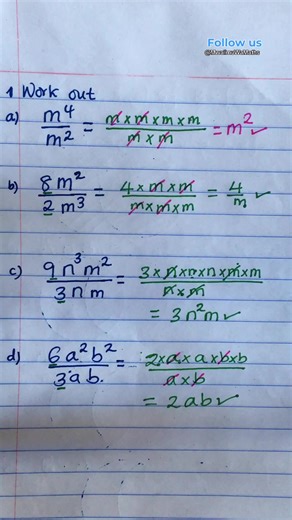 Follow us
1 Work out
a) m⁴/m² = m × m × m × m / m × m = m² ✓
b) 8m²/2m³ = 4 × m × m / m × m × m = 4/m ✓
c) 9n³m²/3nm = 3 × n × n × n × m × m / n × m
= 3n²m ✓
d) 6a²b²/3ab. = 2 × a × a × b × b / a × b
= 2ab ✓